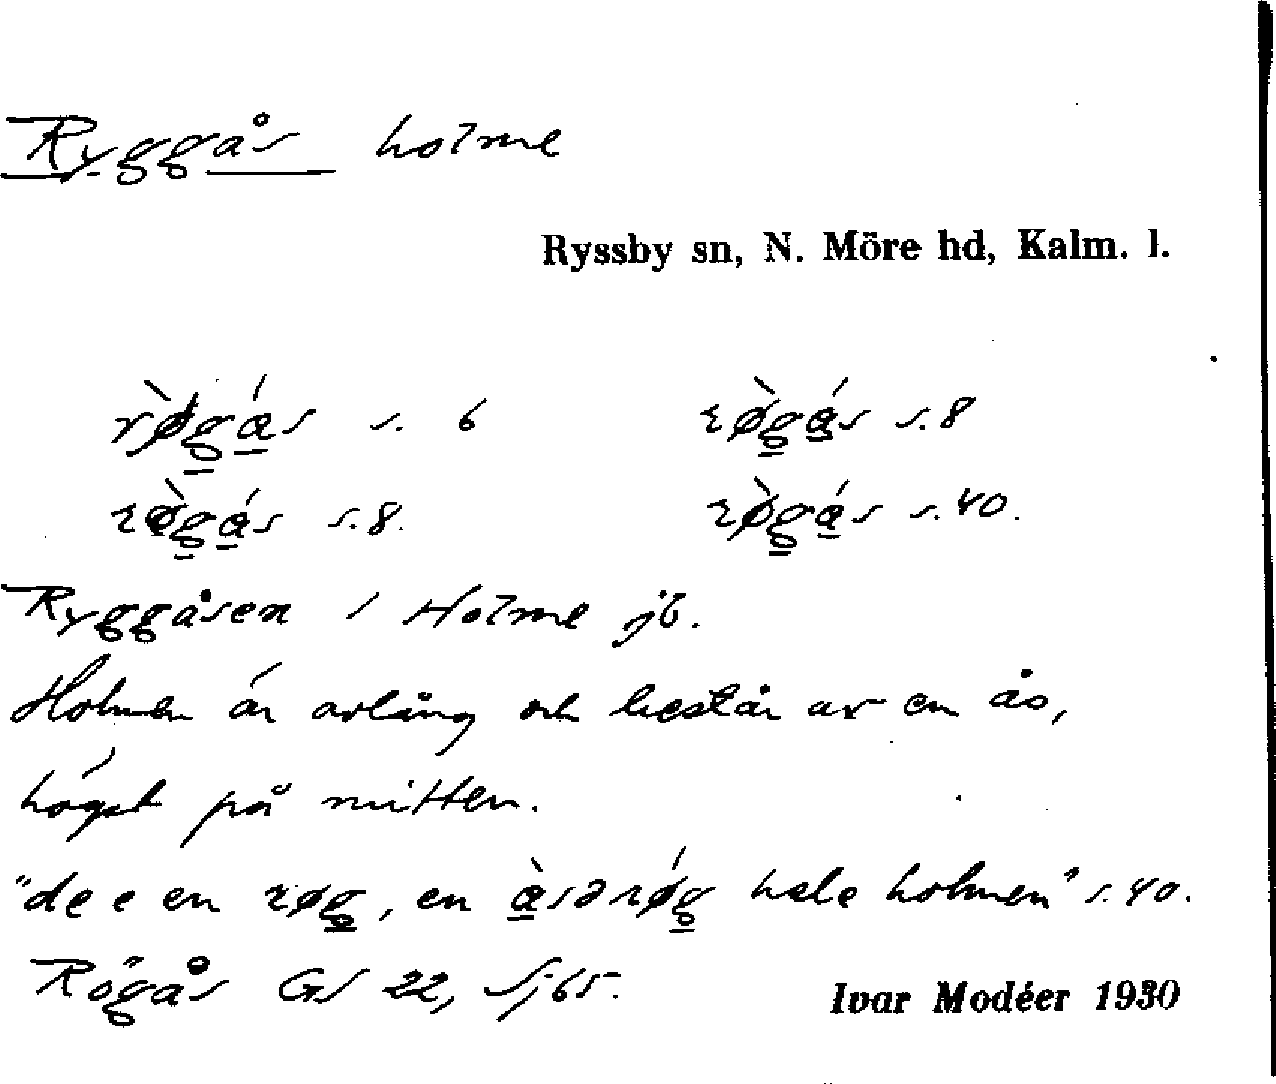 Ryggås holme
Ryssby sn, N. Möre hd, Kalm. l.
rø̀gás s. 6 rø̀gás s. 8
rø̀gás s. 8. rø̀gás s. 40.
Ryggåsen / Holme jb.
Holmen är avlång och består av en ås,
högst på mitten.
"de e en røg, en àsərǿg hele holmen" s. 40.
Rögås GS 22, Sj 65.
Ivar Modéer 1930